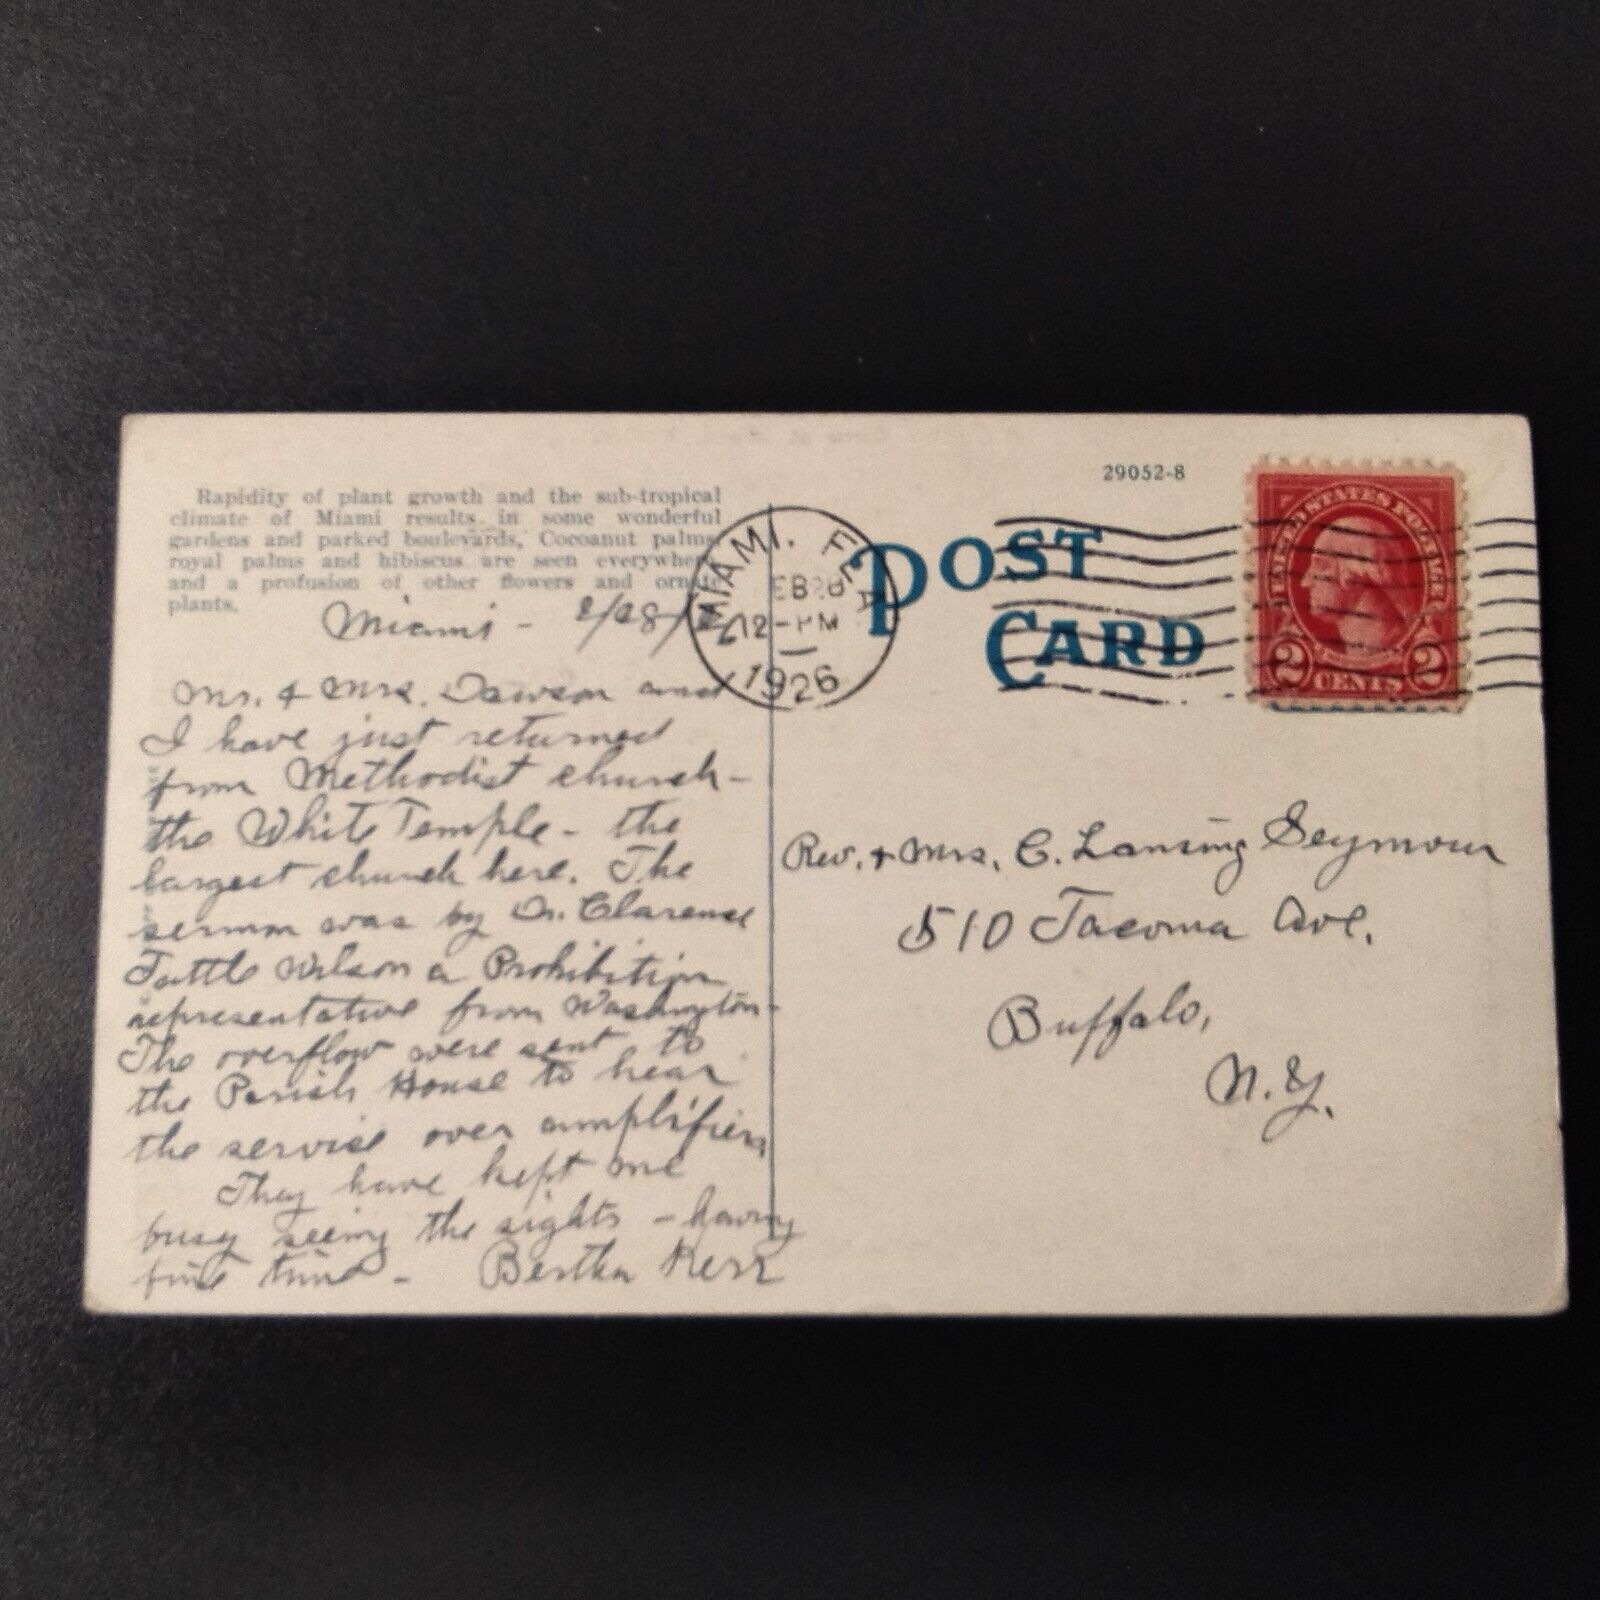 29052-8
Rapidity of plant growth and the sub-tropical
climate of Miami results in some wonderful
gardens and parked boulevards, Cocoanut palms,
royal palms and hibiscus are seen everywhere
and a profusion of other flowers and ornate
plants.
MIAMI. FLA.
12-PM
1926
POST
CARD
UNITED STATES POSTAGE
2 CENTS 2
Miami - 2/28/
Mr. & Mrs. Dawson and
I have just returned
from Methodist church -
the White Temple - the
largest church here. The
sermon was by Dr. Clarence
Tuttle Wilson a Prohibition
representative from Washington -
The overflow were sent to
the Parish House to hear
the service over amplifiers
They have kept me
busy seeing the sights - having
fine time - Bertha Kerr
Rev. & Mrs. C. Lansing Seymour
510 Tacoma Ave.
Buffalo,
N.Y.